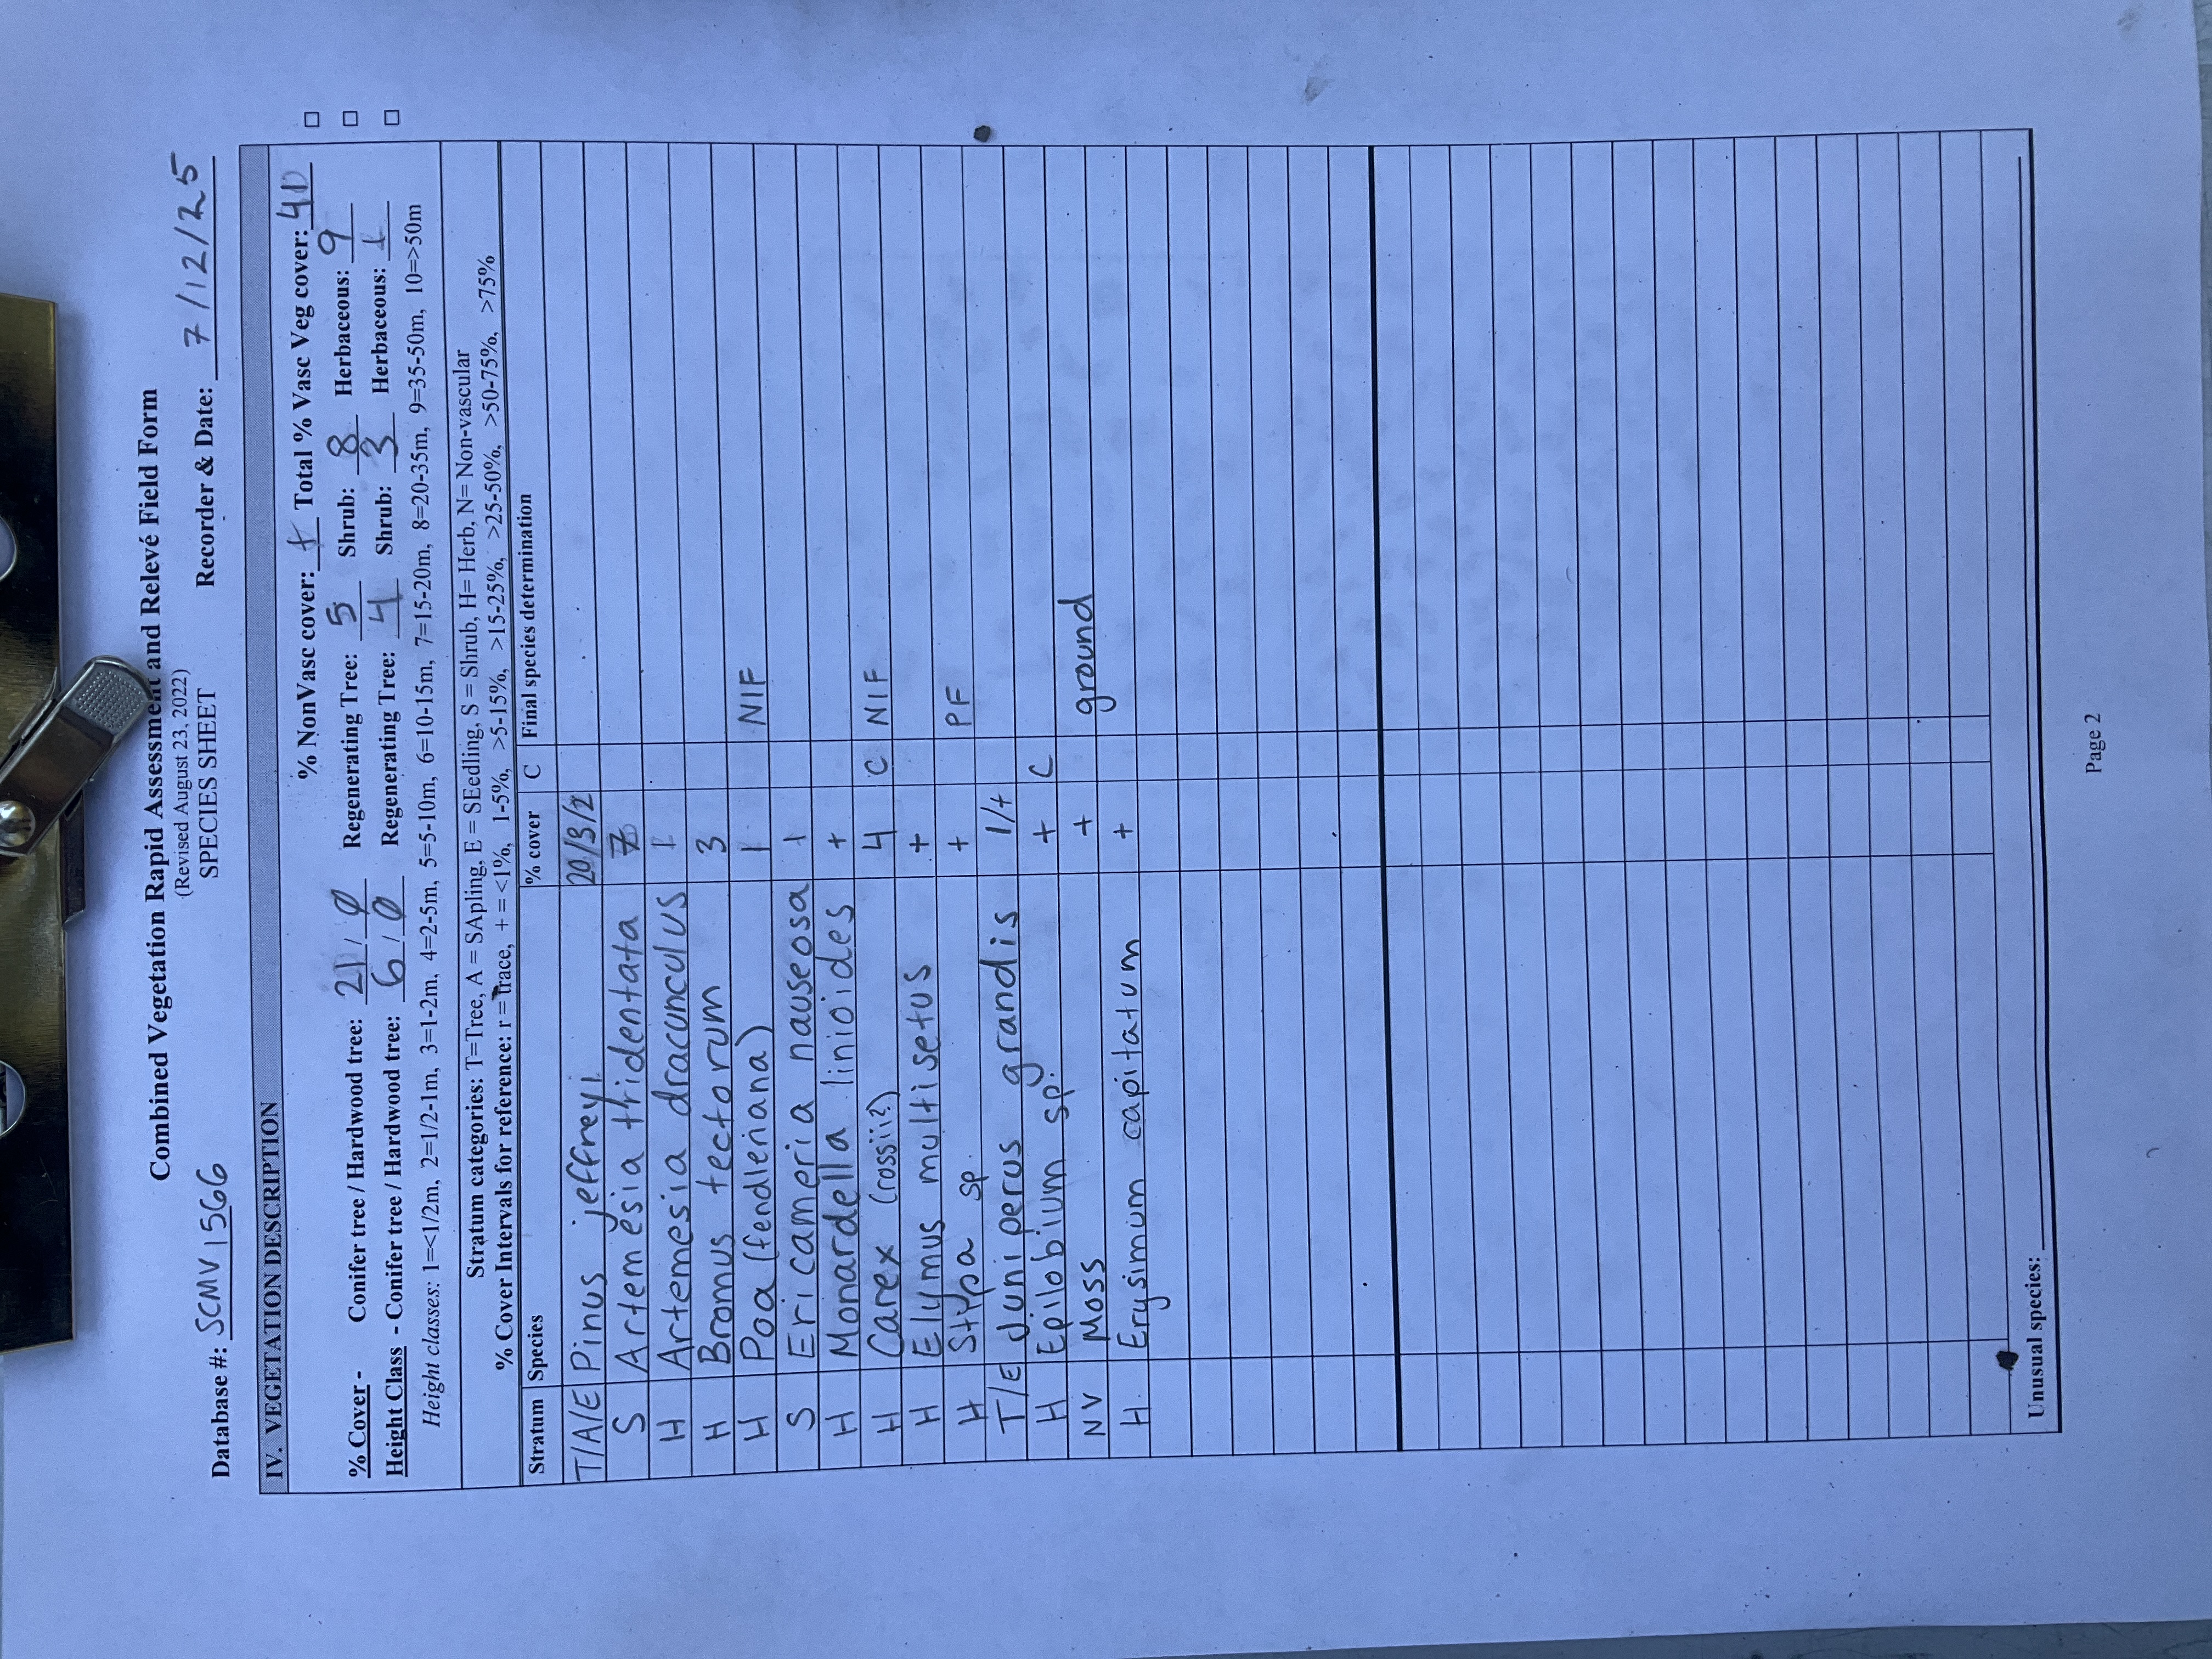 Combined Vegetation Rapid Assessment and Relevé Field Form
(Revised August 23, 2022)
SPECIES SHEET
Database #: SCMV1566 Recorder & Date: 7/12/25
IV. VEGETATION DESCRIPTION
% NonVasc cover: + Total % Vasc Veg cover: 41
% Cover - Conifer tree / Hardwood tree: 21 / Ø Regenerating Tree: 5 Shrub: 8 Herbaceous: 9
Height Class - Conifer tree / Hardwood tree: 6 / Ø Regenerating Tree: 4 Shrub: 3 Herbaceous: 1
Height classes: 1=<1/2m, 2=1/2-1m, 3=1-2m, 4=2-5m, 5=5-10m, 6=10-15m, 7=15-20m, 8=20-35m, 9=35-50m, 10=>50m
Stratum categories: T=Tree, A = SApling, E = SEedling, S = Shrub, H= Herb, N= Non-vascular
% Cover Intervals for reference: r = trace, + = <1%, 1-5%, >5-15%, >15-25%, >25-50%, >50-75%, >75%
Stratum Species % cover C Final species determination
T/A/E Pinus jeffreyi 20/3/2
S Artemesia tridentata 7
H Artemesia dracunculus 1
H Bromus tectorum 3
H Poa (fendleriana) 1 NIF
S Ericameria nauseosa 1
H Monardella linioides +
H Carex (rossii?) 4 C NIF
H Elymus multisetus +
H Stipa sp. + PF
T/E Juniperus grandis 1/+
H Epilobium sp. + C
NV Moss + ground
H Erysimum capitatum +
Unusual species:
Page 2